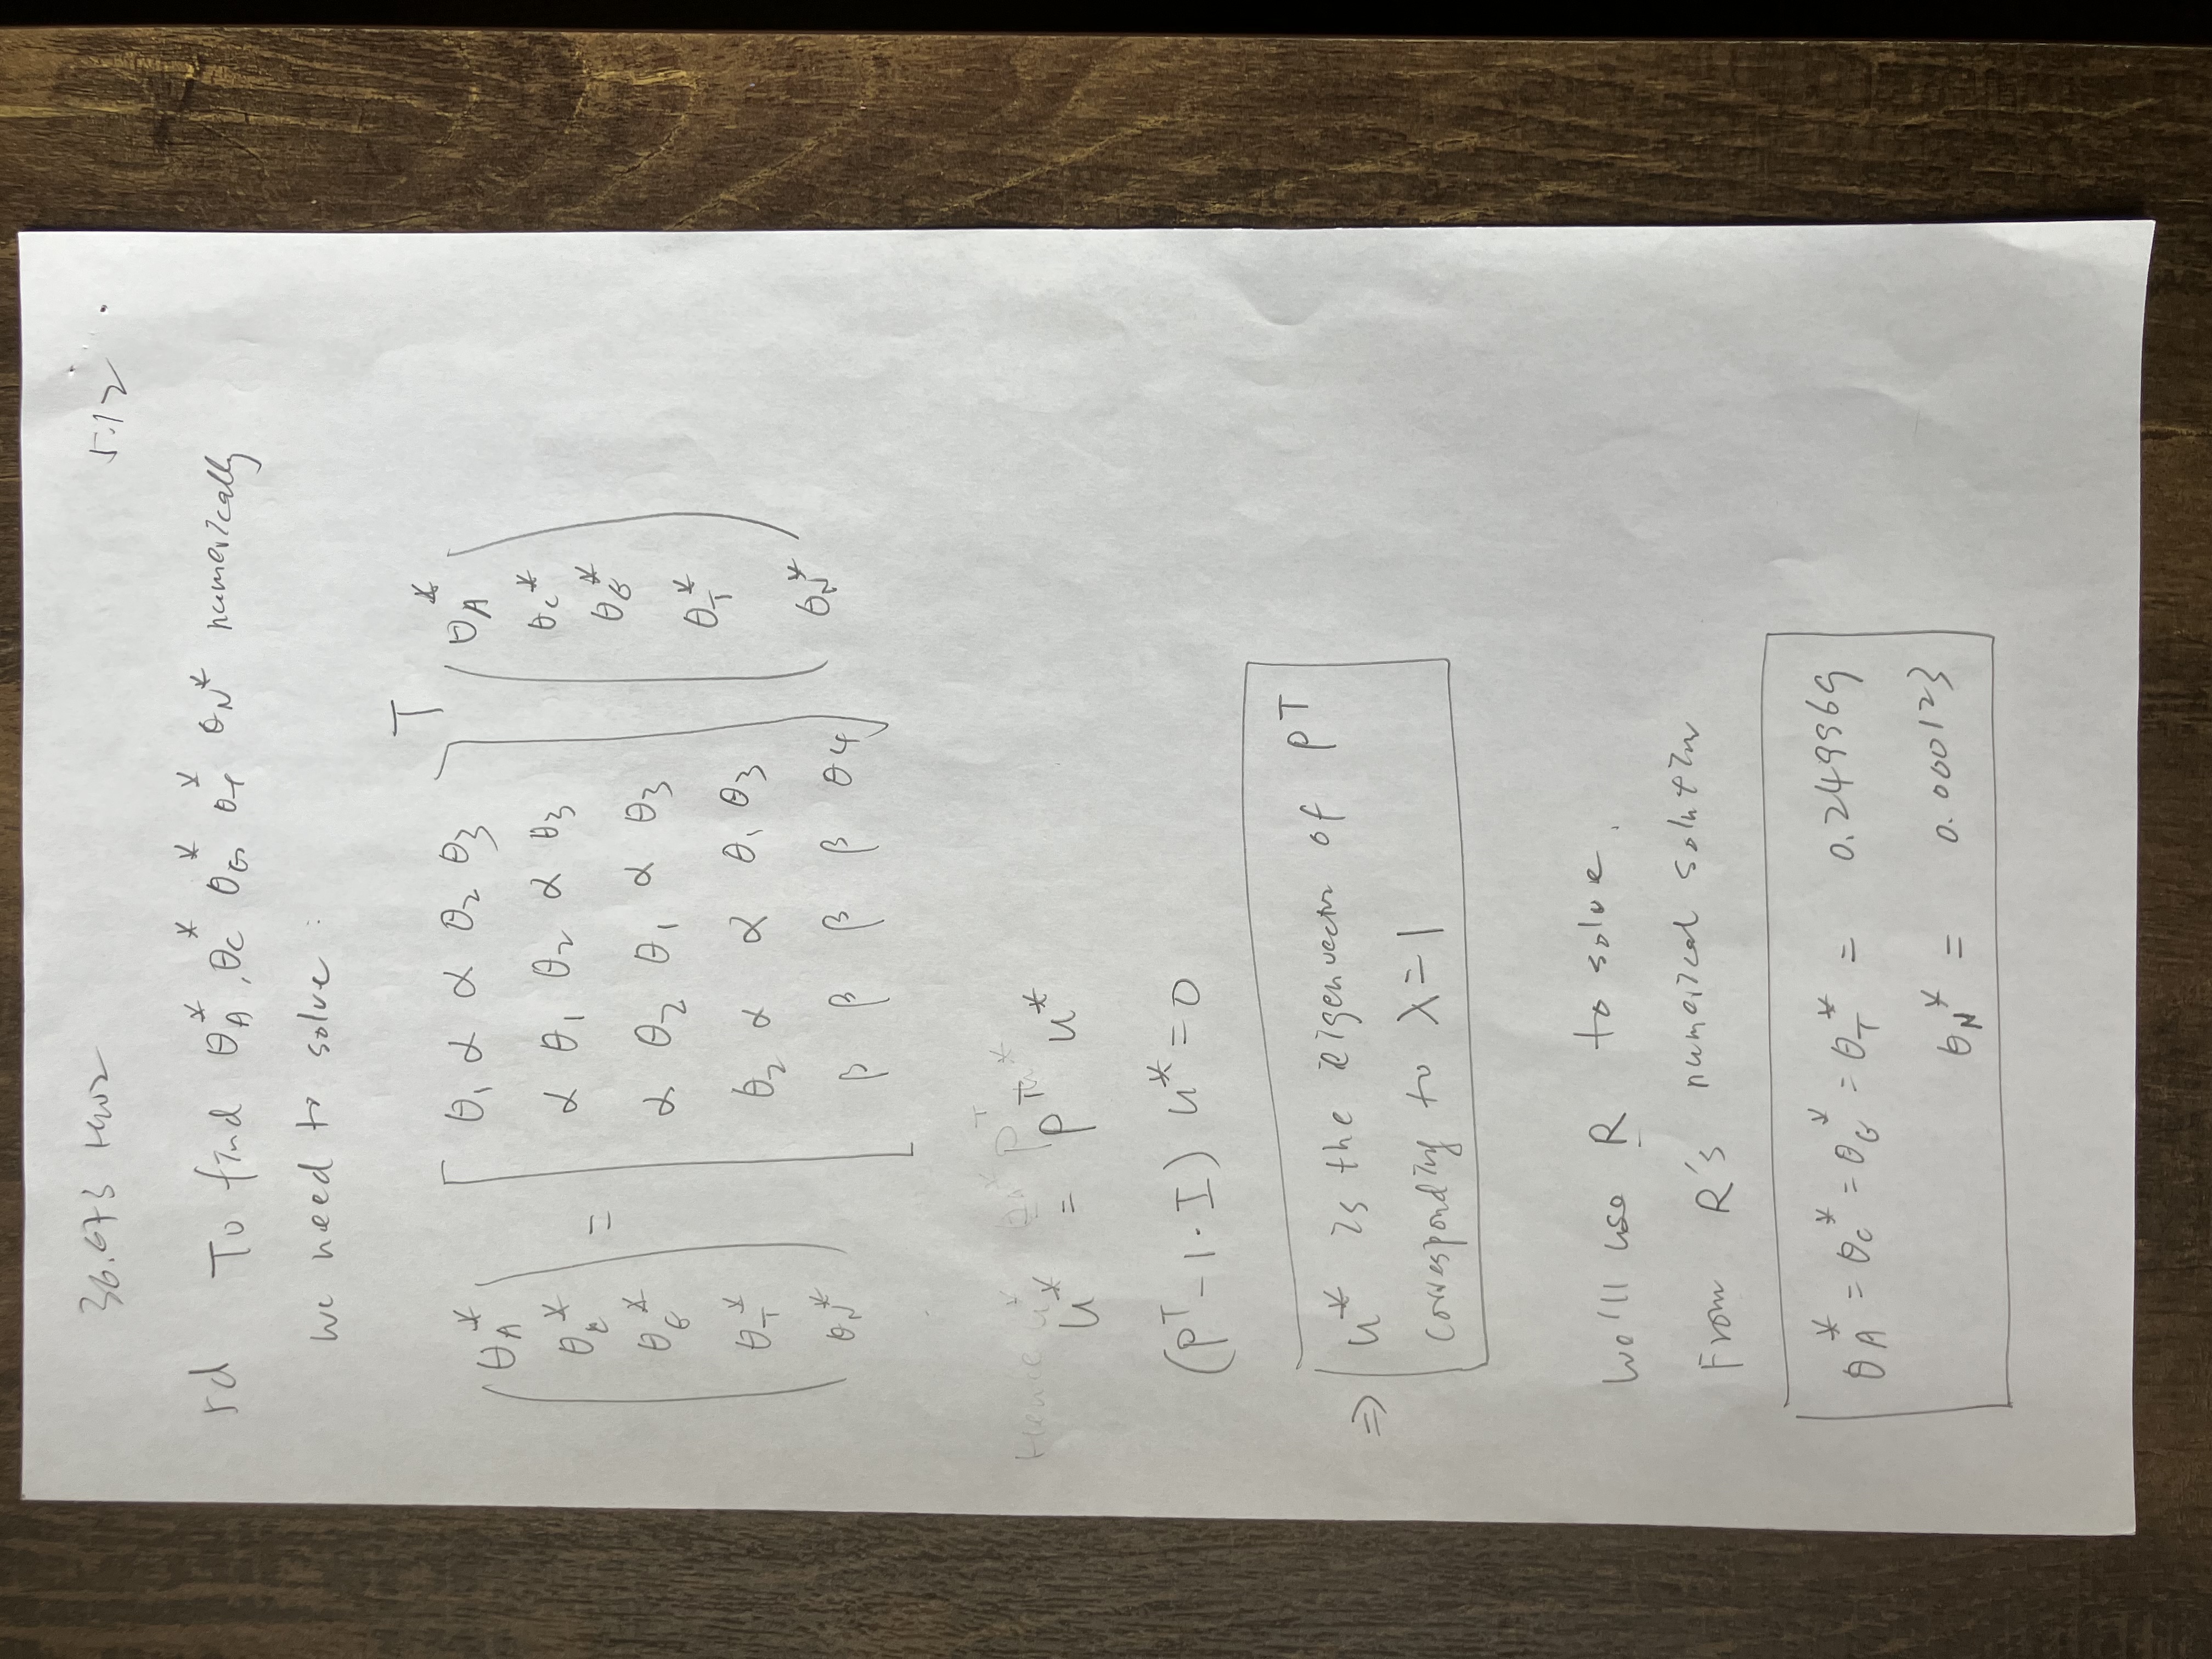 36.673 HW2 5.12
5d To find θA*, θC* θG* θT* θN* numerically
we need to solve :
θA* θ1 α α θ2 θ3 T θA*
θC* α θ1 θ2 α θ3 θC*
θG* = α θ2 θ1 α θ3 θG*
θT* θ2 α α θ1 θ3 θT*
θN* β β β β θ4 θN*
Hence
u* = P^T u*
(P^T - 1·I) u* = 0
⇒ u* is the eigenvector of P^T
corresponding to λ=1
We'll use R to solve.
From R's numerical solution
θA* = θC* = θG* = θT* = 0.249969
θN* = 0.000123